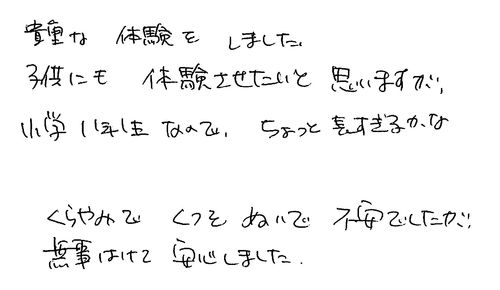 貴重な 体験を しました
子供にも 体験させたいと 思いますが、
小学1年生なので、ちょっと 長すぎるかな
くらやみで くつを ぬいで 不安でしたが、
無事はけて 安心しました.